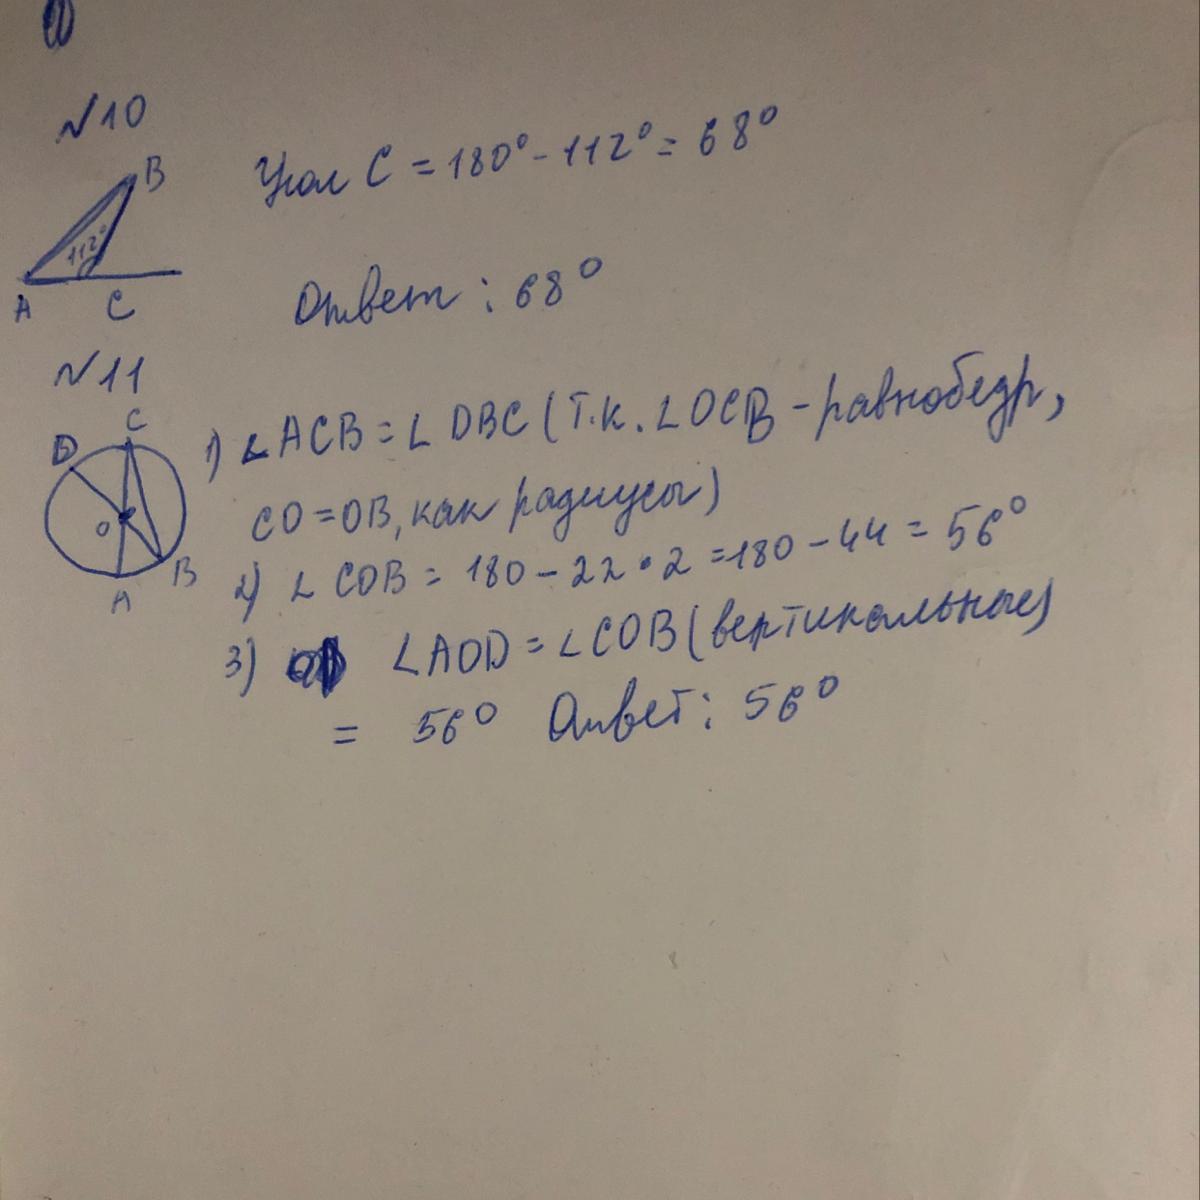 №10
B
112°
A
C
Угол C = 180° - 112° = 68°
Ответ: 68°
№11
C
D
O
B
A
1) ∠ACB = ∠DBC (т.к. ∠OCB - равнобедр,
CO = OB, как радиусы)
2) ∠COB = 180 - 22 • 2 = 180 - 44 = 56°
3) ∠AOD = ∠COB (вертикальные)
= 56° Ответ: 56°